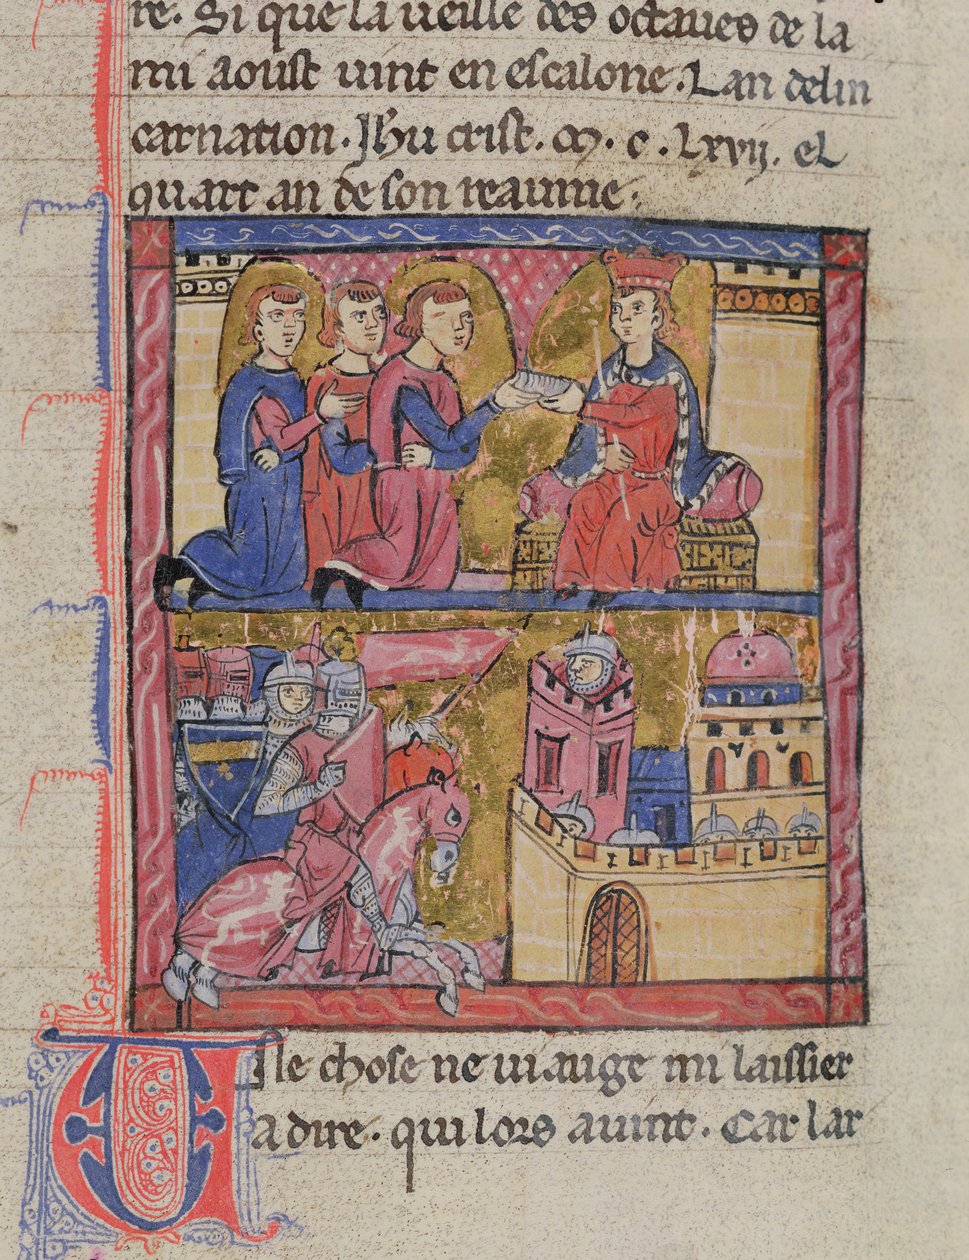 re. Si que la ueille des octaues de la
mi aoust uint en escalone. Lan delin
carnation. Jhu crist. m. c. Lxvij. el
quart an de son reaume.
Vile chose ne uiauge mi laissier
a dire. qui lors auint. Car lar